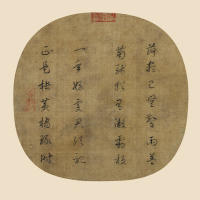 荷盡已無擎雨蓋
菊殘猶有傲霜枝
一年好君須記
正是橙黃橘綠時